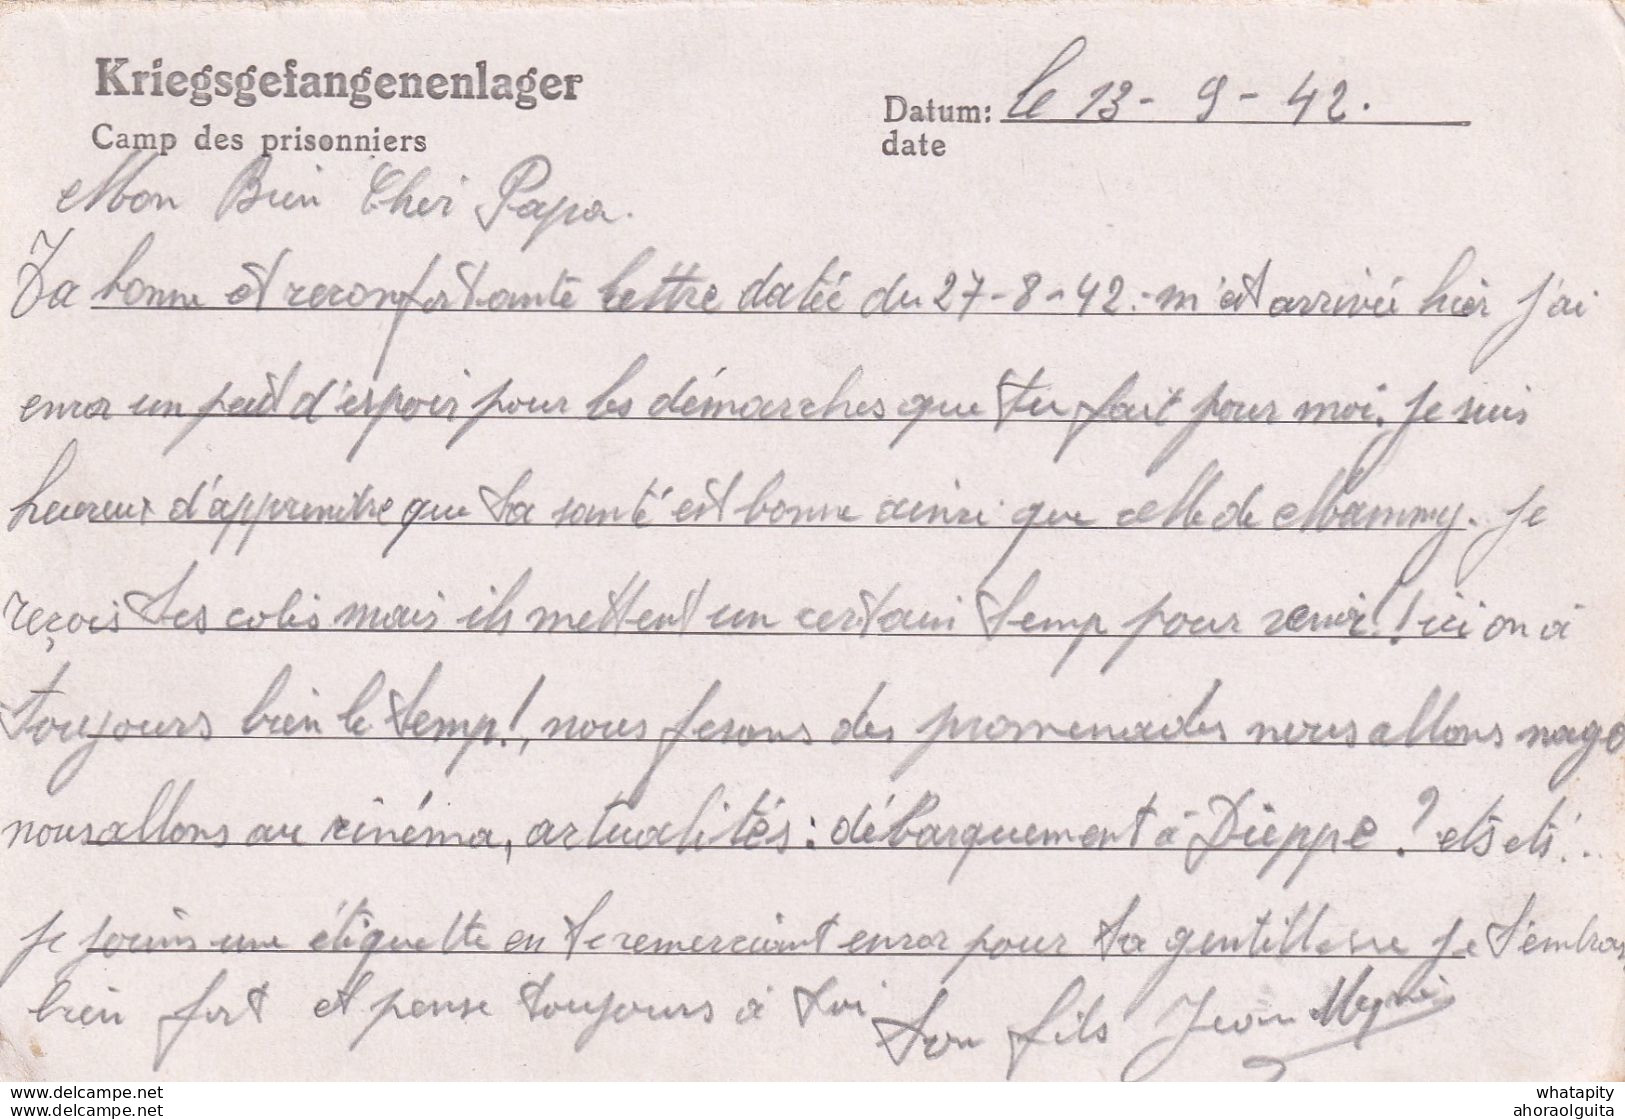 Kriegsgefangenenlager
Camp des prisonniers
Datum: le 13 - 9 - 42.
date
Mon Bien Cher Papa.
Ta bonne et reconfortante lettre datée du 27-8-42.- m'est arrivée hier j'ai
encor un petit d'espoir pour les démarches que tu fait pour moi. Je suis
heureux d'apprendre que ta santé est bonne ainsi que celle de Mammy. Je
reçois tes colis mais ils mettent un certain temp pour venir! ici on à
toujours bien le temp!, nous fesons des promenades nous allons nage
nous allons au cinéma, actualités: débarquement à Dieppe? etc etc...
je joins une étiquette en te remerciant encor pour ta gentillesse je t'embras
bien fort et pense toujours à toi
Ton fils Jean
whatapity
ahoraolguita
delcampe.net
delcampe.net